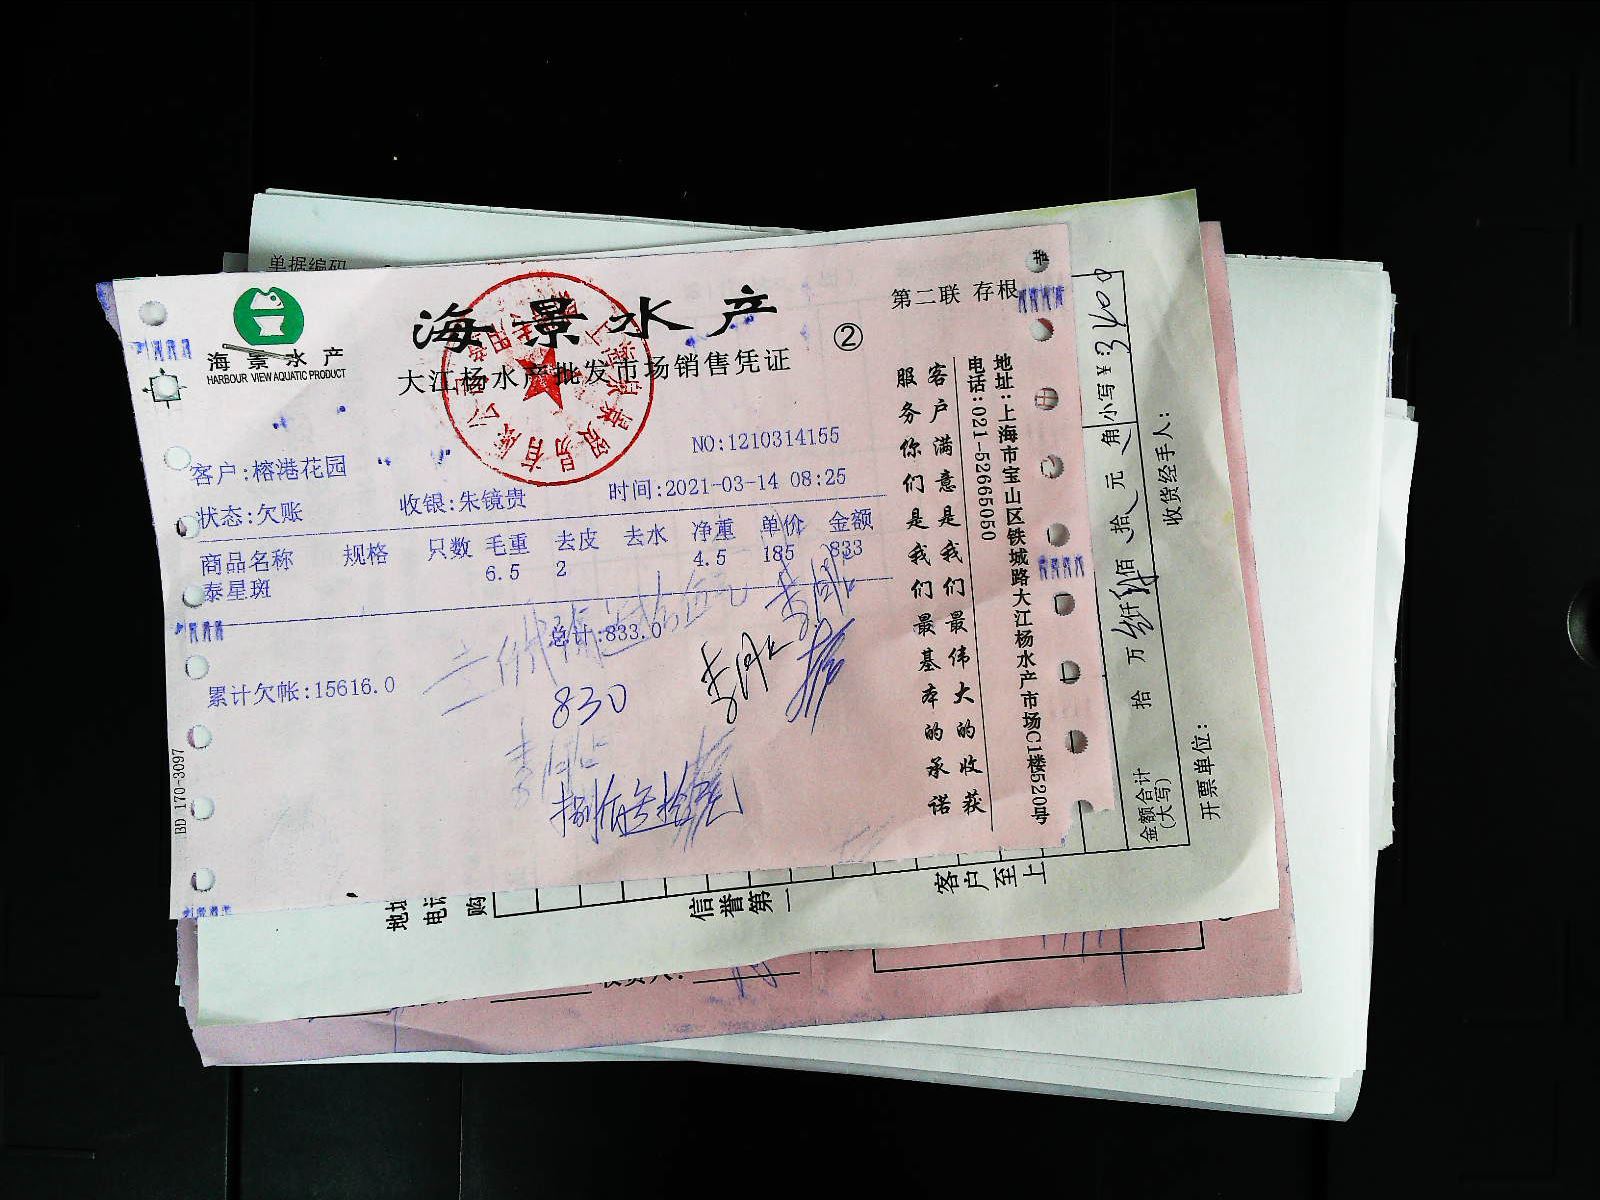 单据编码
海景水产
HARBOUR VIEW AQUATIC PRODUCT
海景水产
大江杨水产批发市场销售凭证
②
第二联 存根
NO:1210314155
客户:榕港花园
状态:欠账
收银:朱镜贵
时间:2021-03-14 08:25
商品名称 规格 只数 毛重 去皮 去水 净重 单价 金额
泰星斑 6.5 2 4.5 185 833
总计:833.0
累计欠帐:15616.0
830
捌佰叁拾元
BD 170-3097
客户满意是我们最伟大的收获
服务你们是我们最基本的承诺
地址:上海市宝山区铁城路大江杨水产市场C1楼520号
电话:021-52665050
金额合计
(大写)
拾 万 仟 佰 拾 元 角
小写¥:3400
开票单位:
收货经手人:
地址
电话
购
信誉第一
客户至上
收货人: